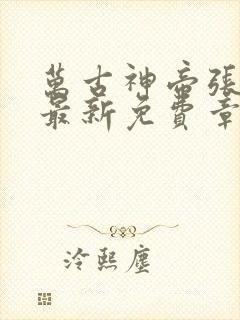 萬古神帝張
最新免費章
冷熙塵